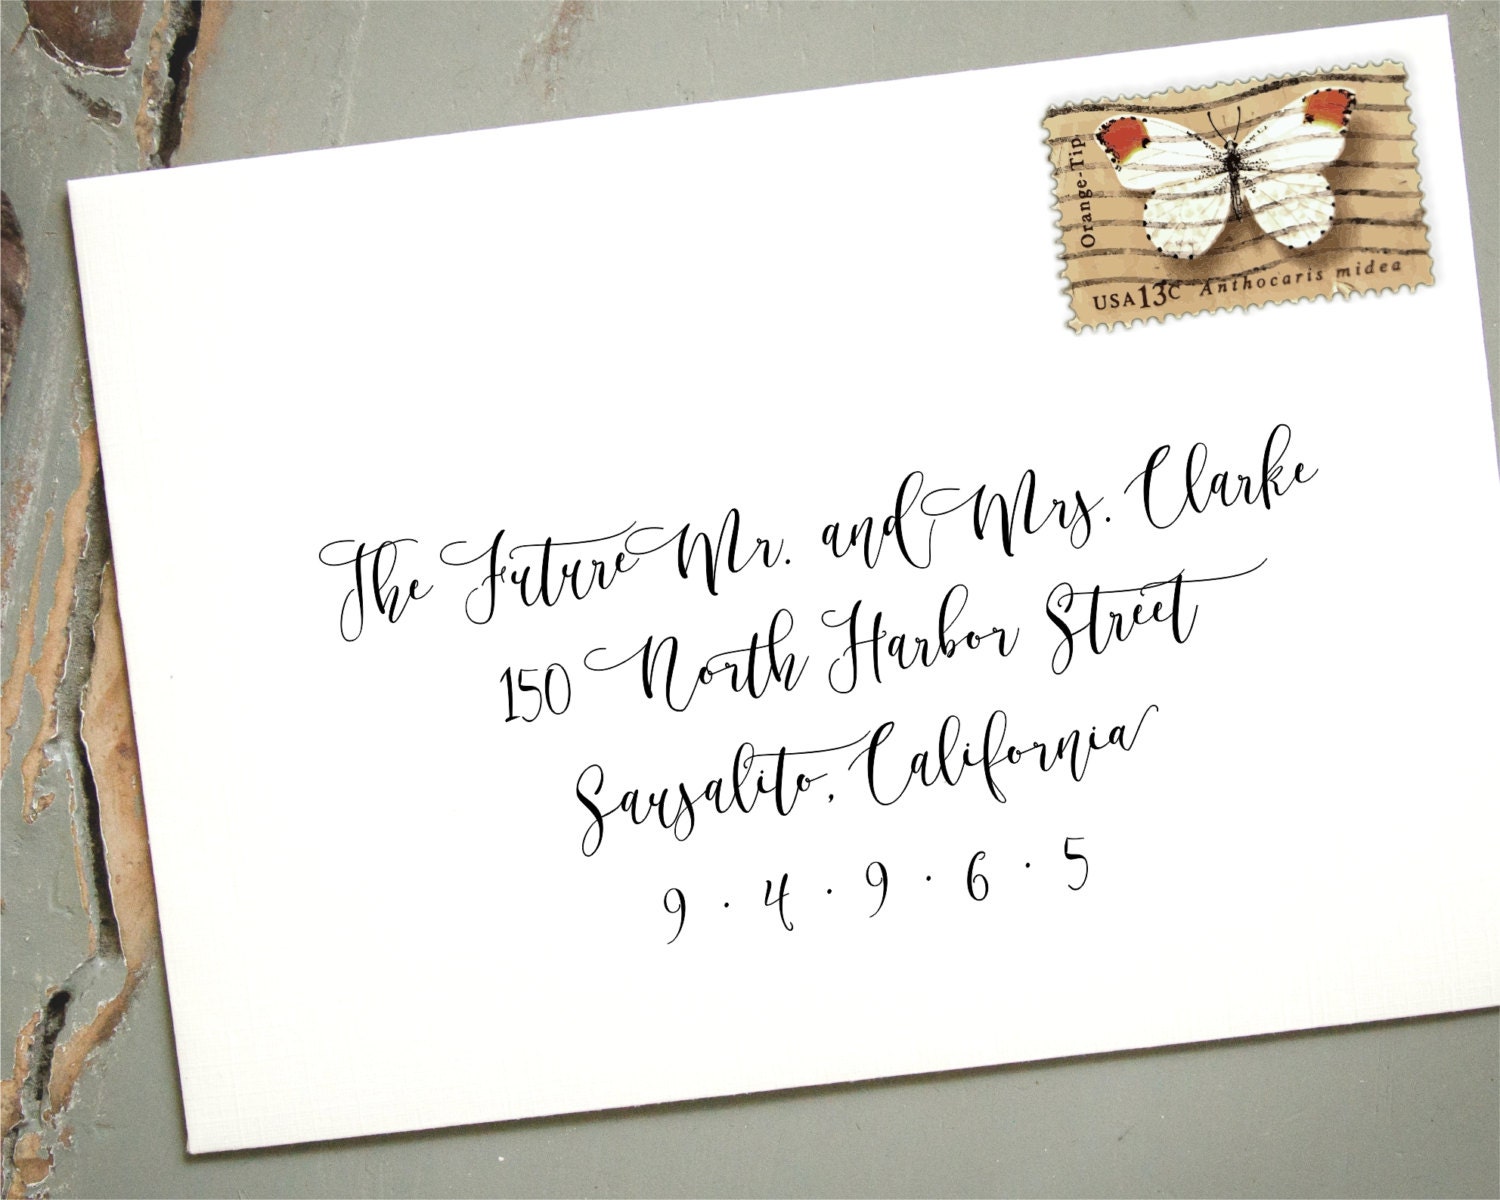 Orange-Tip
USA 13c Anthocaris midea
The Future Mr. and Mrs. Clarke
150 North Harbor Street
Sausalito, California
9 · 4 · 9 · 6 · 5